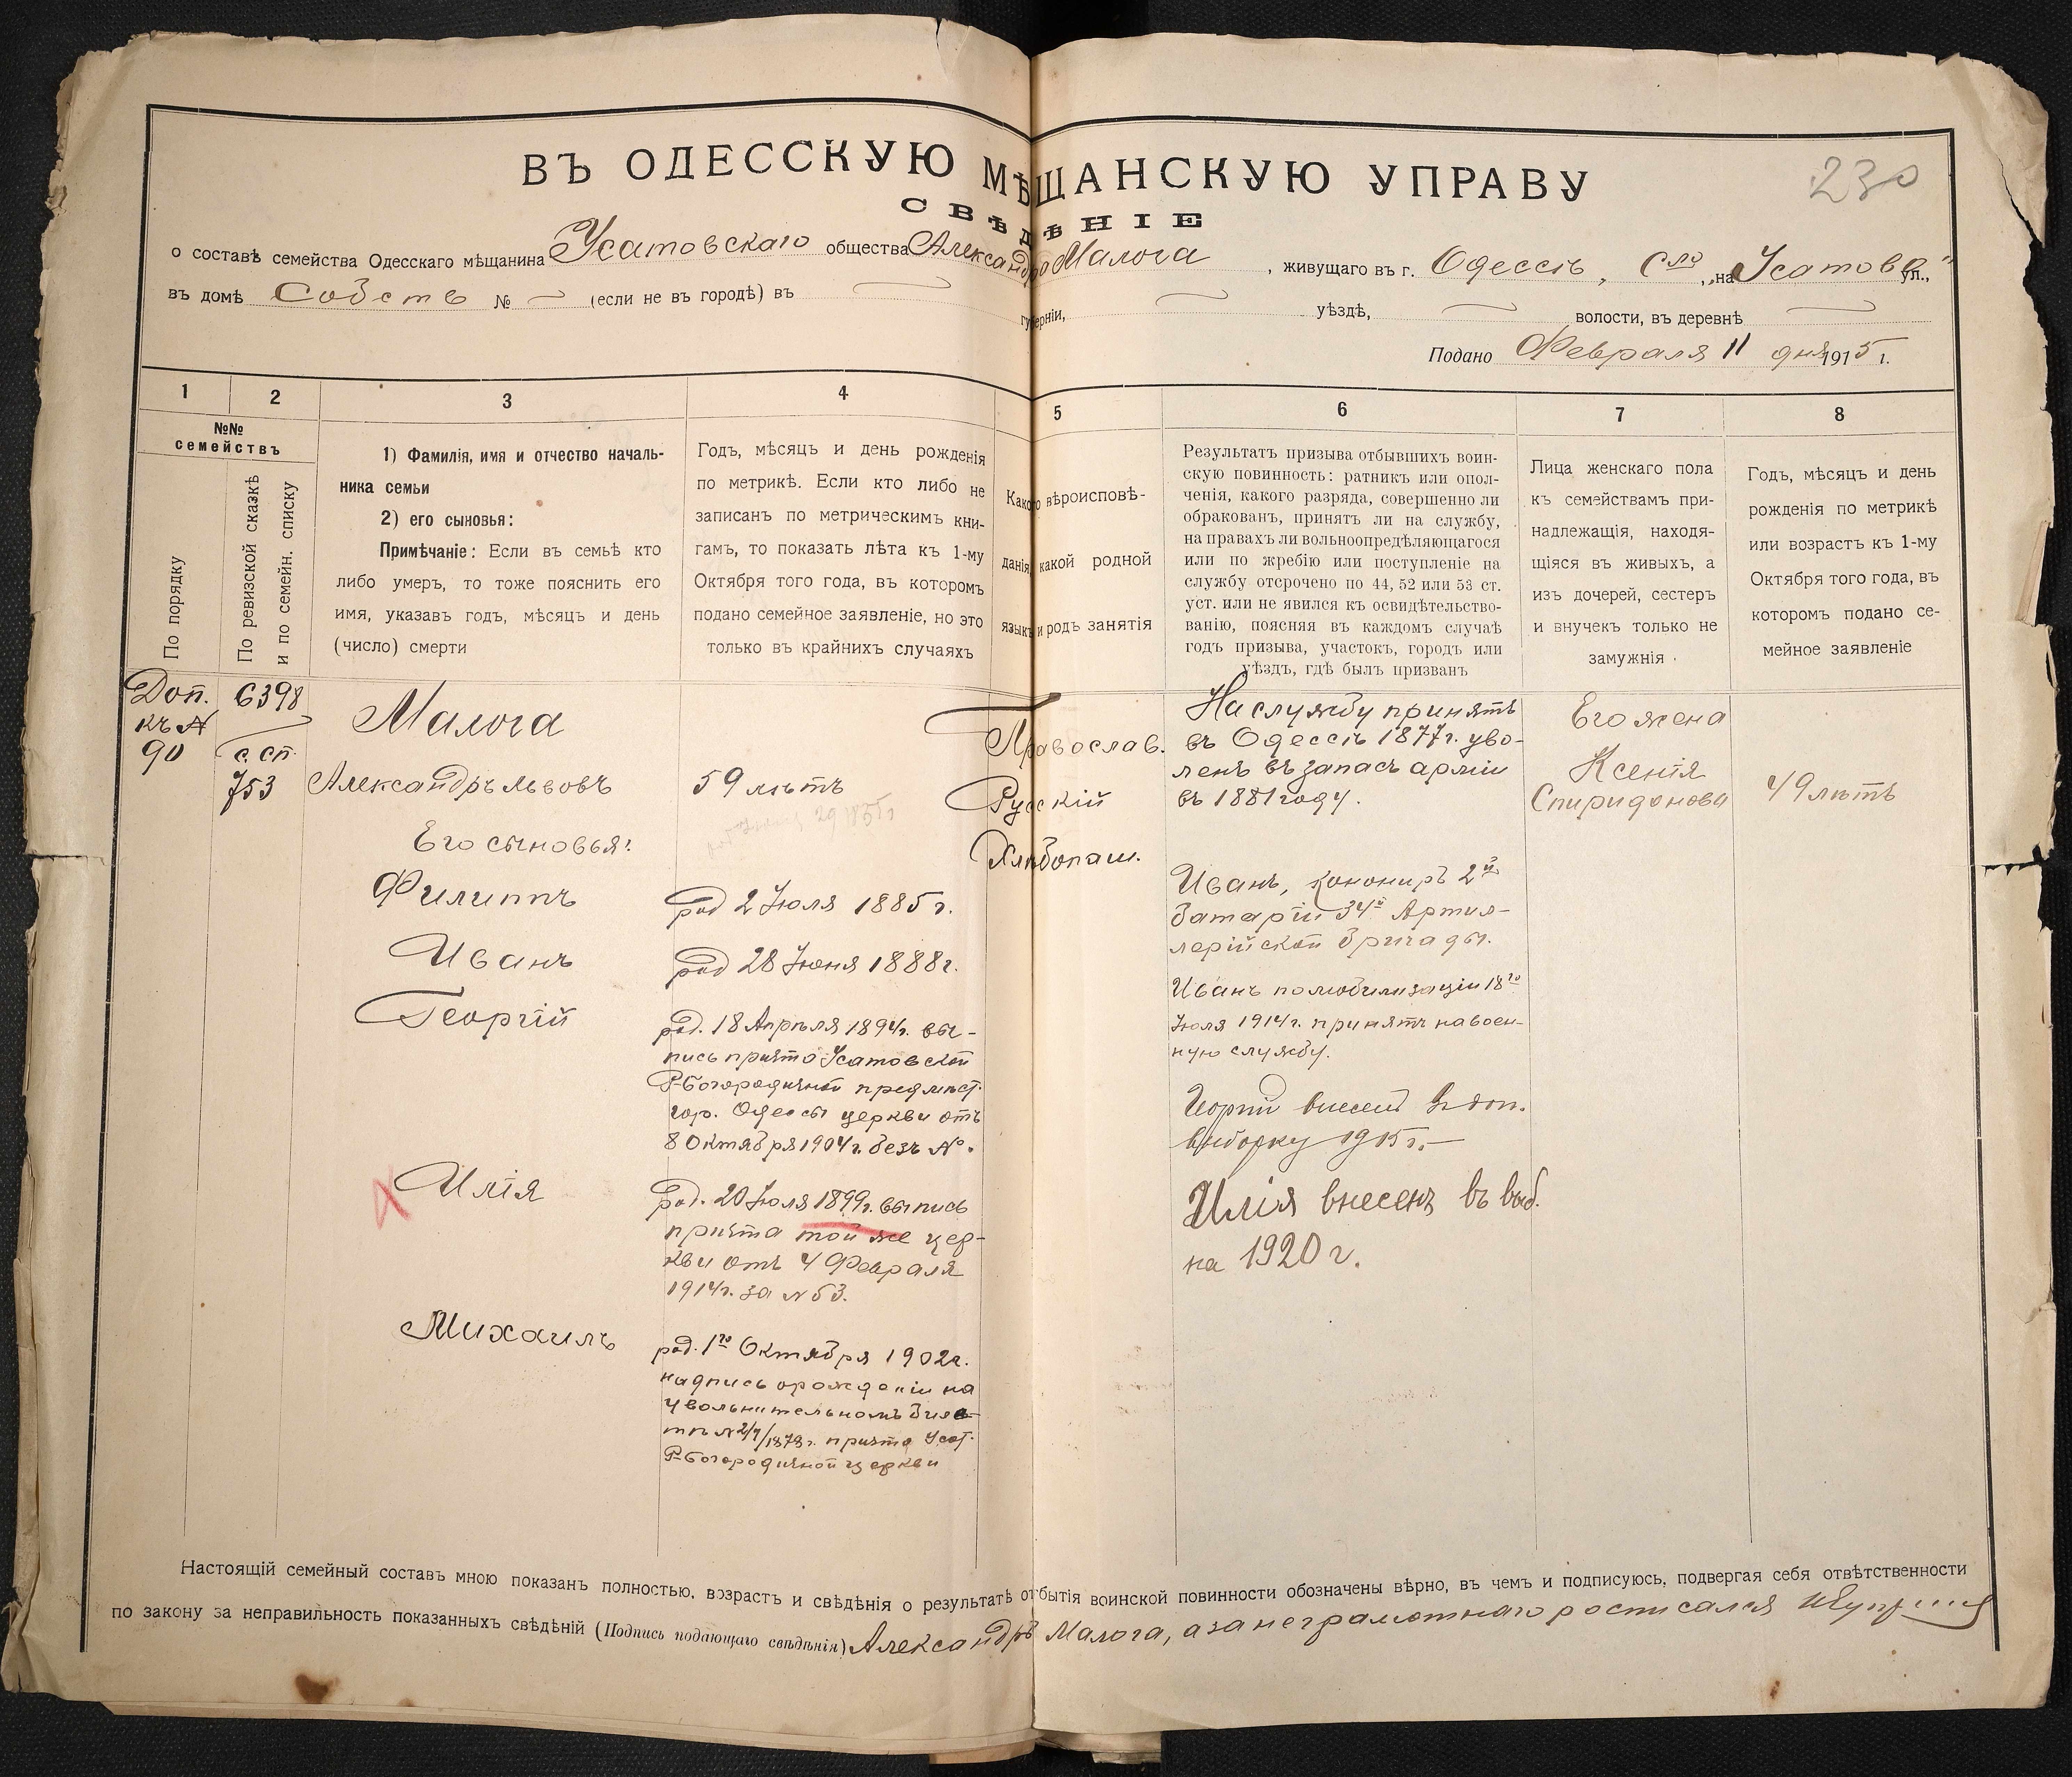 230
ВЪ ОДЕССКУЮ МѢЩАНСКУЮ УПРАВУ
СВѢДѢНІЕ
о составѣ семейства Одесскаго мѣщанина Усатовскаго общества Александра Малога, живущаго въ г. Одессѣ, Сло „на Усатова" ул.,
въ домѣ Собств № — (если не въ городѣ) въ — губерніи, — уѣздѣ, — волости, въ деревнѣ —
Подано Февраля 11 дня 1915 г.
1 2 3 4 5 6 7 8
№№
семействъ
По порядку
По ревизской сказкѣ
и по семейн. списку
1) Фамилія, имя и отчество началь-
ника семьи
2) его сыновья:
Примѣчаніе: Если въ семьѣ кто
либо умеръ, то тоже пояснить его
имя, указавъ годъ, мѣсяцъ и день
(число) смерти
Годъ, мѣсяцъ и день рожденія
по метрикѣ. Если кто либо не
записанъ по метрическимъ кни-
гамъ, то показать лѣта къ 1-му
Октября того года, въ которомъ
подано семейное заявленіе, но это
только въ крайнихъ случаяхъ
Какого вѣроисповѣ-
данія, какой родной
языкъ и родъ занятія
Результатъ призыва отбывшихъ воин-
скую повинность: ратникъ или опол-
ченія, какого разряда, совершенно ли
обракованъ, принятъ ли на службу,
на правахъ ли вольноопредѣляющагося
или по жребію или поступленіе на
службу отсрочено по 44, 52 или 53 ст.
уст. или не явился къ освидѣтельство-
ванію, поясняя въ каждомъ случаѣ
годъ призыва, участокъ, городъ или
уѣздъ, гдѣ былъ призванъ
Лица женскаго пола
къ семействамъ при-
надлежащія, находя-
щіяся въ живыхъ, а
изъ дочерей, сестеръ
и внучекъ только не
замужнія
Годъ, мѣсяцъ и день
рожденія по метрикѣ
или возрастъ къ 1-му
Октября того года, въ
котором подано се-
мейное заявленіе
Доп.
къ №
90
6398
с. сп.
753
Малога
Александръ Львовъ
Его сыновья:
Филиппъ
Иванъ
Георгій
Илія
Михаилъ
59 лѣтъ
29 1855 г
род 2 Іюля 1885 г.
род 28 Іюня 1888 г.
род. 18 Апрѣля 1894 г. вы-
пись причта Усатовской
Р-Богородичной предмѣст.
гор. Одессы церкви отъ
8 Октября 1904 г. безъ №.
род. 20 Іюля 1899 г. выпись
причта той же цер-
кви отъ 4 Февраля
1914 г. за № 53.
род. 1го Октября 1902 г.
надпись о рожденіи на
увольнительномъ биле-
тѣ № /1878 г. причта Усат.
Р-Богородичной церкви
Православ.
Русскій
Хлѣбопаш.
На службу принятъ
въ Одессѣ 1877 г. уво-
ленъ въ запасъ арміи
въ 1881 году.
Иванъ, кононирѣ 2й
батаріи 34й Артил-
лерійской бригады.
Иванъ по мобилизаціи 18го
Іюля 1914 г. принятъ на воен-
ную службу.
Георгій внесенъ въ доп.
выборку 1915 г.—
Илія внесенъ въ выб.
на 1920 г.
Его жена
Ксенія
Спиридонова
49 лѣтъ
Настоящій семейный составъ мною показанъ полностью, возрастъ и свѣдѣнія о результатѣ отбытія воинской повинности обозначены вѣрно, въ чемъ и подписуюсь, подвергая себя отвѣтственности
по закону за неправильность показанныхъ свѣдѣній (Подпись подающаго свѣдѣнія) Александръ Малога, а за неграмотнаго росписался